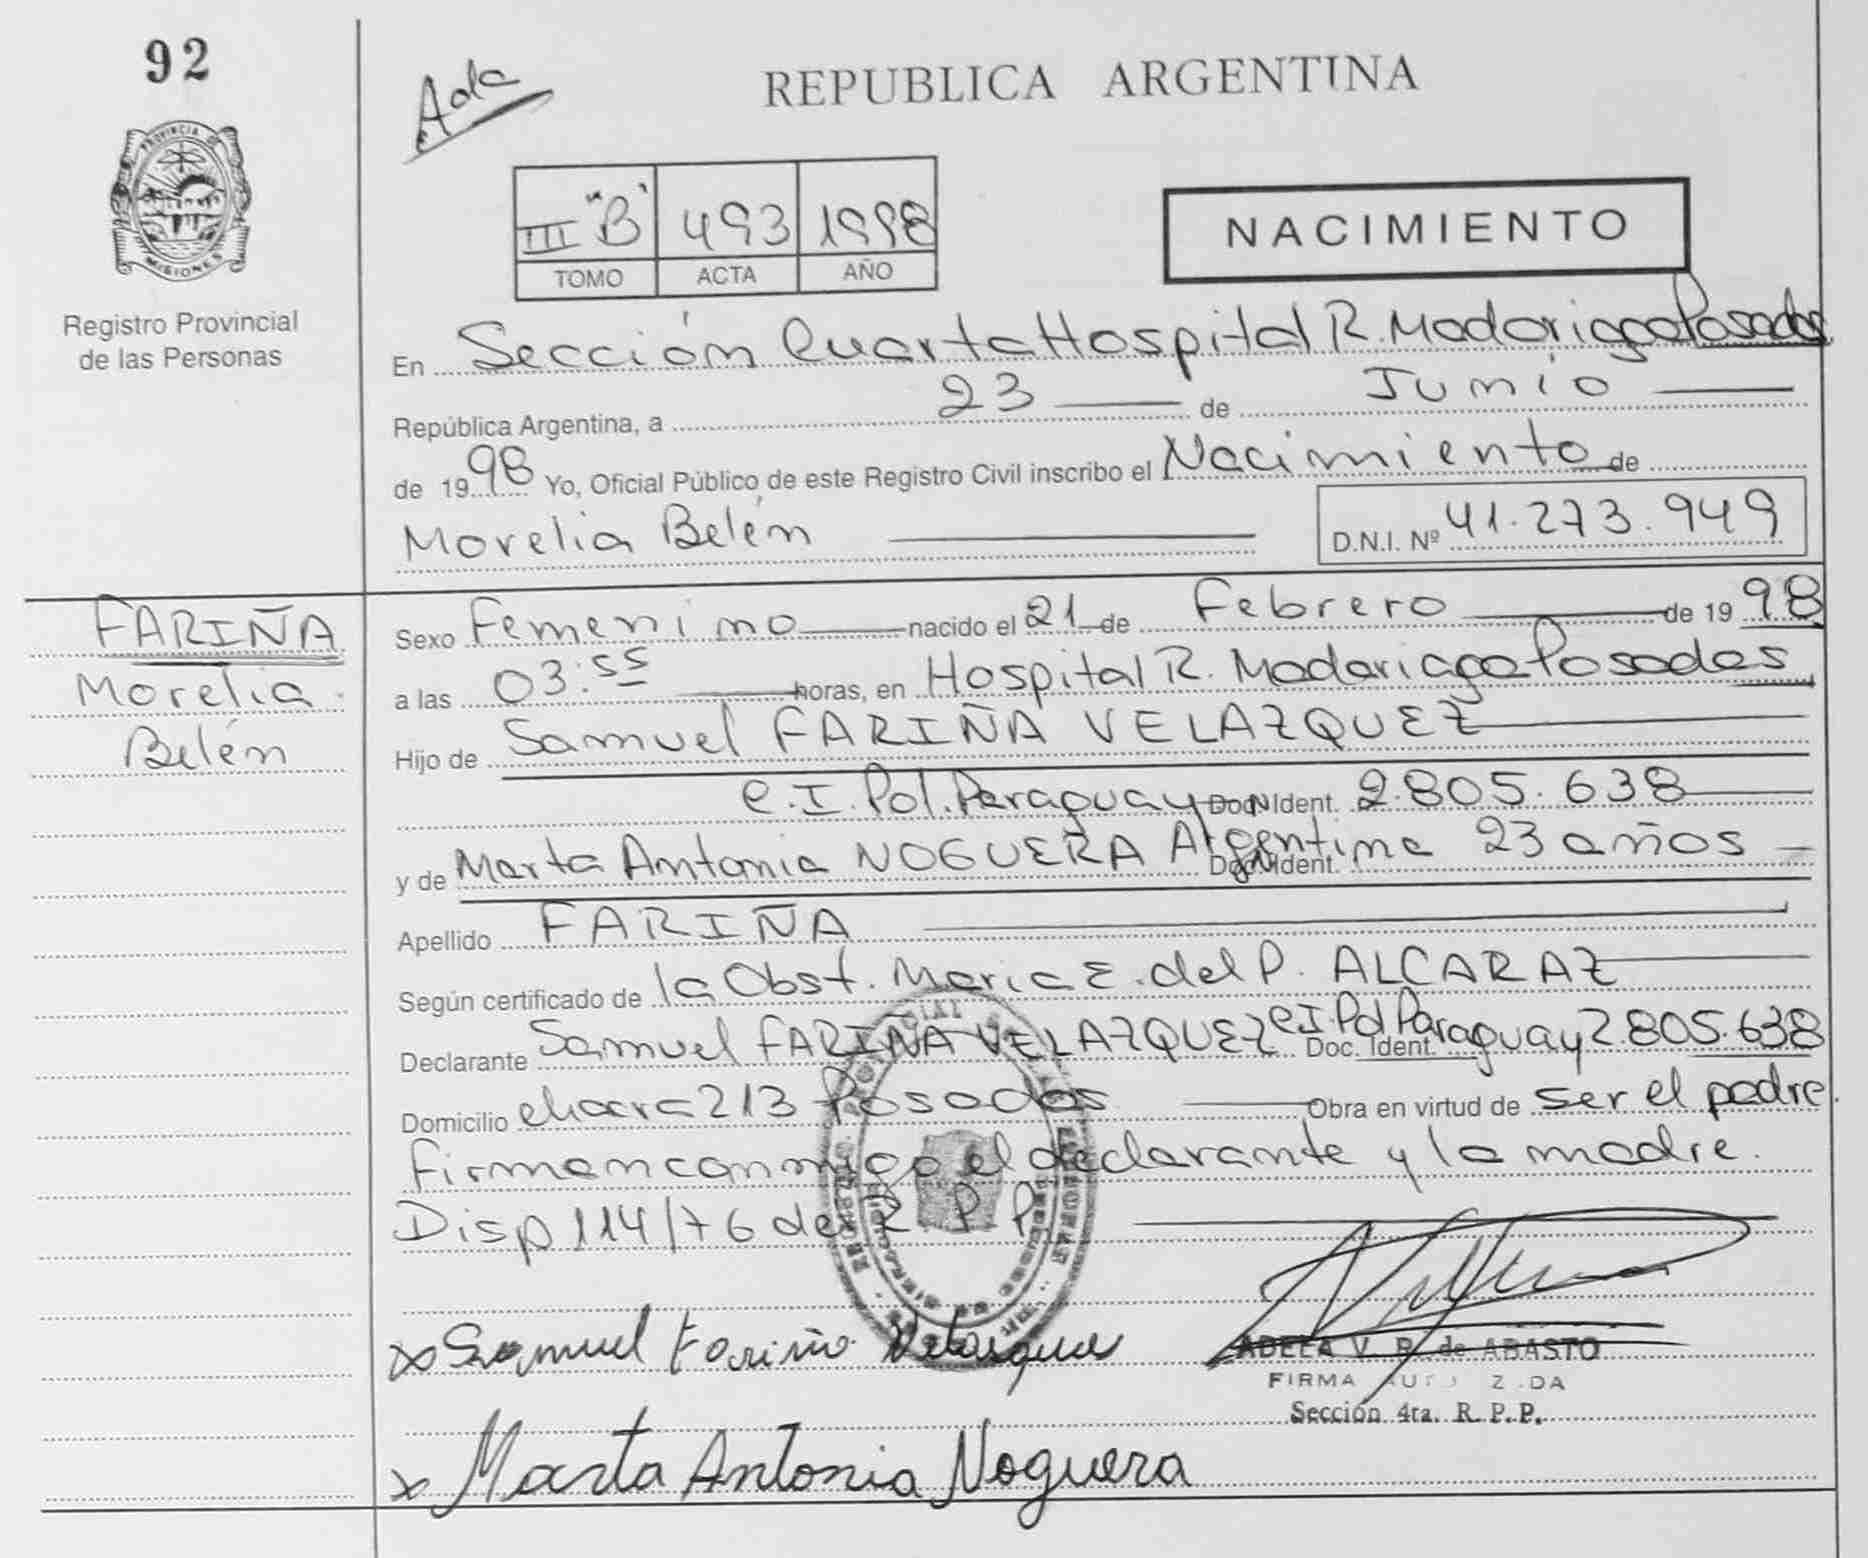 92
Ada
REPUBLICA ARGENTINA
PROVINCIA DE
MISIONES
Registro Provincial
de las Personas
III "B" 493 1998
TOMO ACTA AÑO
NACIMIENTO
En Sección Cuarta Hospital R. Madariaga Posadas
República Argentina, a 23 de Junio
de 1998 Yo, Oficial Público de este Registro Civil inscribo el Nacimiento de
Morelia Belén
D.N.I. Nº 41.273.949
FARIÑA
Morelia
Belén
Sexo Femenino nacido el 21 de Febrero de 1998
a las 03:55 horas, en Hospital R. Madariaga Posadas
Hijo de Samuel FARIÑA VELAZQUEZ
C.I. Pol. Paraguay Doc. Ident. 2.805.638
y de Marta Antonia NOGUERA Argentina Doc. Ident. 23 años
Apellido FARIÑA
Según certificado de la Obst. Maria E. del P. ALCARAZ
Declarante Samuel FARIÑA VELAZQUEZ C.I. Pol. Paraguay Doc. Ident. 2.805.638
Domicilio chacra 213 Posadas Obra en virtud de ser el padre
Firman conmigo el declarante y la madre.
Disp 114/76 de R. P. P.
x Samuel Fariña Velasquez
ADELA V. R. de ABASTO
FIRMA AUTORIZADA
Sección 4ta. R. P. P.
x Marta Antonia Noguera